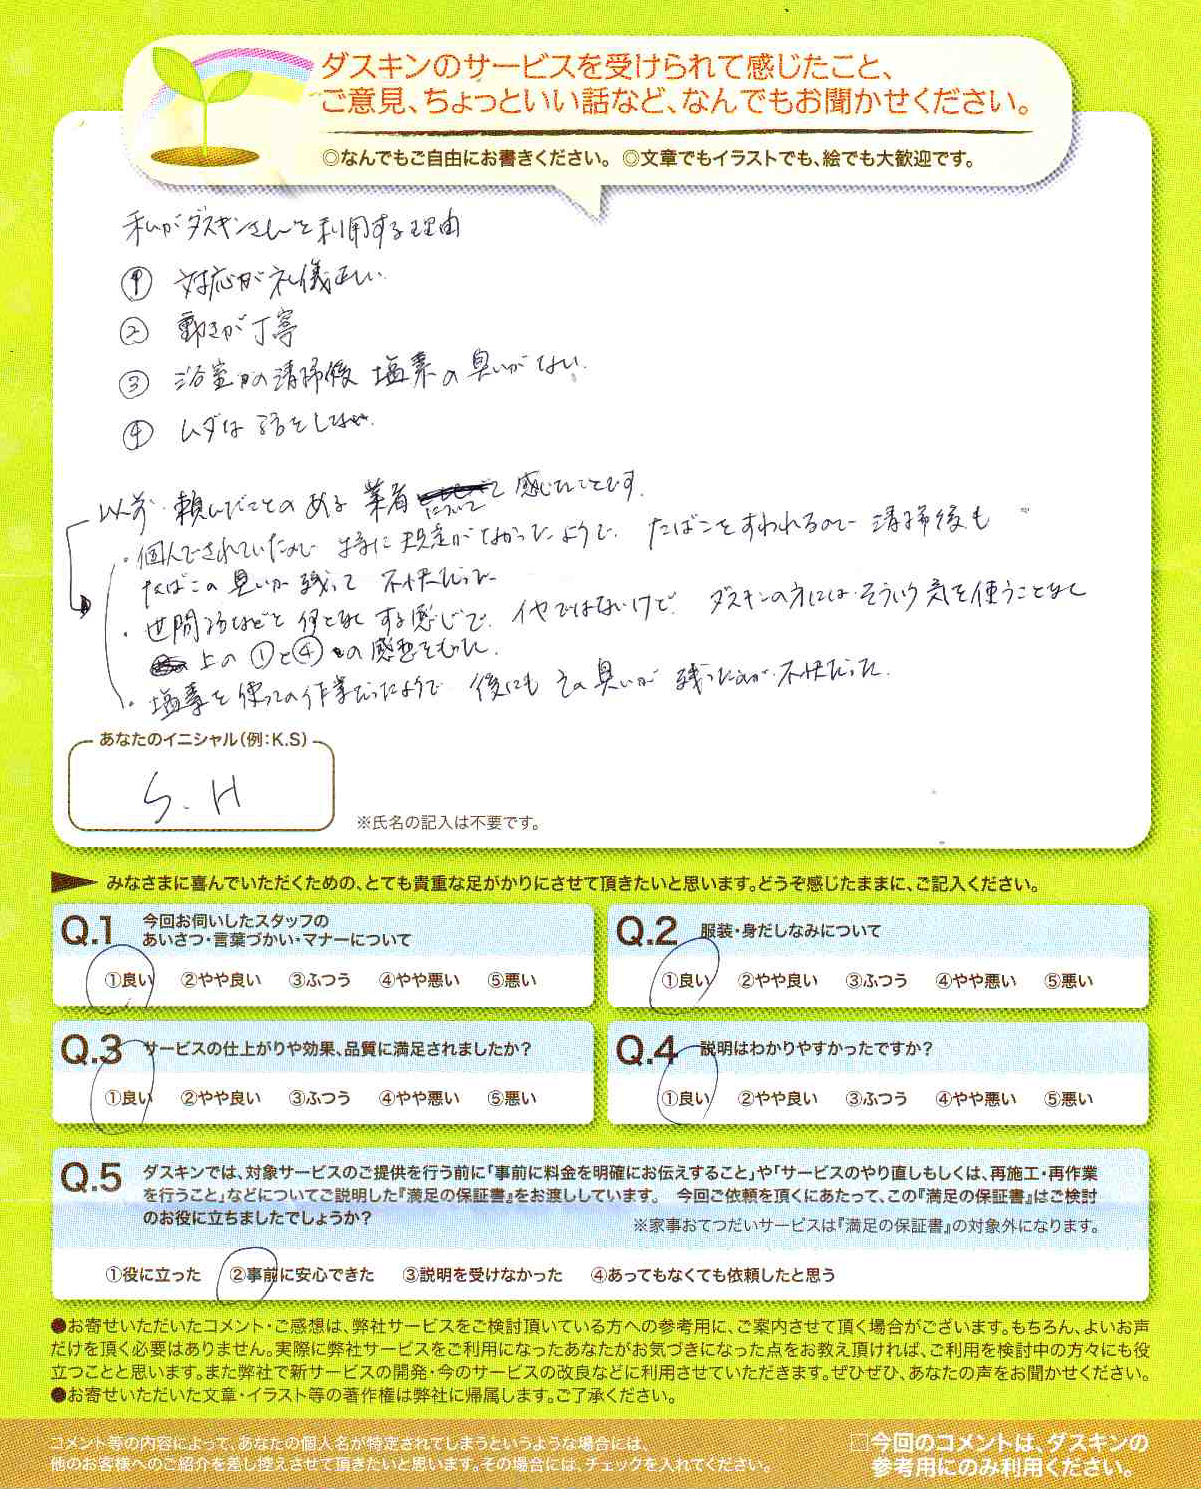 ダスキンのサービスを受けられて感じたこと、
ご意見、ちょっといい話など、なんでもお聞かせください。
◎なんでもご自由にお書きください。 ◎文章でもイラストでも、絵でも大歓迎です。
私がダスキンさんを利用する理由
① 対応が礼儀正しい.
② 動きが丁寧
③ 浴室の清掃後 塩素の臭いがない.
④ ムダな話をしない.
以前 頼んだことのある 業者について 感じたことです.
・個人でされていたので 特に規定がなかったようで. たばこをすわれるので 清掃後も
たばこの臭いが残って 不快だった.
・世間話などを何となくする感じで. イヤではないけど. ダスキンの方には・そういう気を使うことなく
上の①と④の感想をもった.
・塩素を使っての作業だったようで 後にもその臭いが 残ったのが不快だった.
あなたのイニシャル(例:K.S)
S. H
※氏名の記入は不要です。
みなさまに喜んでいただくための、とても貴重な足がかりにさせて頂きたいと思います。どうぞ感じたままに、ご記入ください。
Q.1 今回お伺いしたスタッフの
あいさつ・言葉づかい・マナーについて
①良い ②やや良い ③ふつう ④やや悪い ⑤悪い
Q.2 服装・身だしなみについて
①良い ②やや良い ③ふつう ④やや悪い ⑤悪い
Q.3 サービスの仕上がりや効果、品質に満足されましたか?
①良い ②やや良い ③ふつう ④やや悪い ⑤悪い
Q.4 説明はわかりやすかったですか?
①良い ②やや良い ③ふつう ④やや悪い ⑤悪い
Q.5 ダスキンでは、対象サービスのご提供を行う前に「事前に料金を明確にお伝えすること」や「サービスのやり直しもしくは、再施工・再作業
を行うこと」などについてご説明した『満足の保証書』をお渡ししています。 今回ご依頼を頂くにあたって、この『満足の保証書』はご検討
のお役に立ちましたでしょうか?
※家事おてつだいサービスは『満足の保証書』の対象外になります。
①役に立った ②事前に安心できた ③説明を受けなかった ④あってもなくても依頼したと思う
●お寄せいただいたコメント・ご感想は、弊社サービスをご検討頂いている方への参考用に、ご案内させて頂く場合がございます。もちろん、よいお声
だけを頂く必要はありません。実際に弊社サービスをご利用になったあなたがお気づきになった点をお教え頂ければ、ご利用を検討中の方々にも役
立つことと思います。また弊社で新サービスの開発・今のサービスの改良などに利用させていただきます。ぜひぜひ、あなたの声をお聞かせください。
●お寄せいただいた文章・イラスト等の著作権は弊社に帰属します。ご了承ください。
コメント等の内容によって、あなたの個人名が特定されてしまうというような場合には、
他のお客様へのご紹介を差し控えさせて頂きたいと思います。その場合には、チェックを入れてください。
□今回のコメントは、ダスキンの
参考用にのみ利用ください。